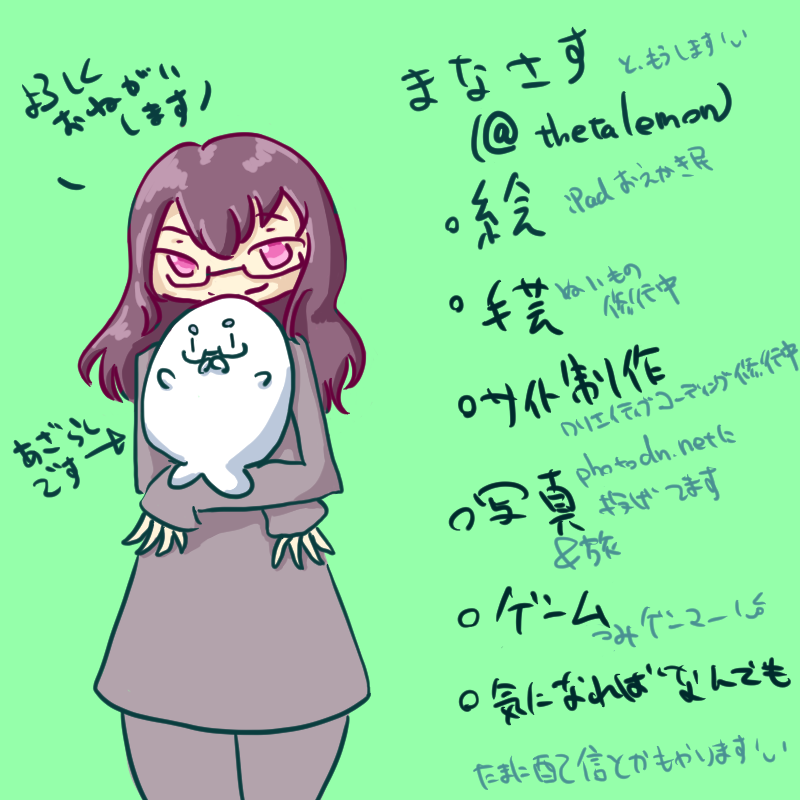 よろしく
おねがい
します
あざらし
です
まなさす
と、もうします
(@thetalemon)
絵
iPadおえかき民
手芸
ぬいもの
修行中
サイト制作
クリエイティブコーディング修行中
写真
photodn.netに
投げてます
&旅
ゲーム
つみゲーマー
気になればなんでも
たまに配信とかもやります